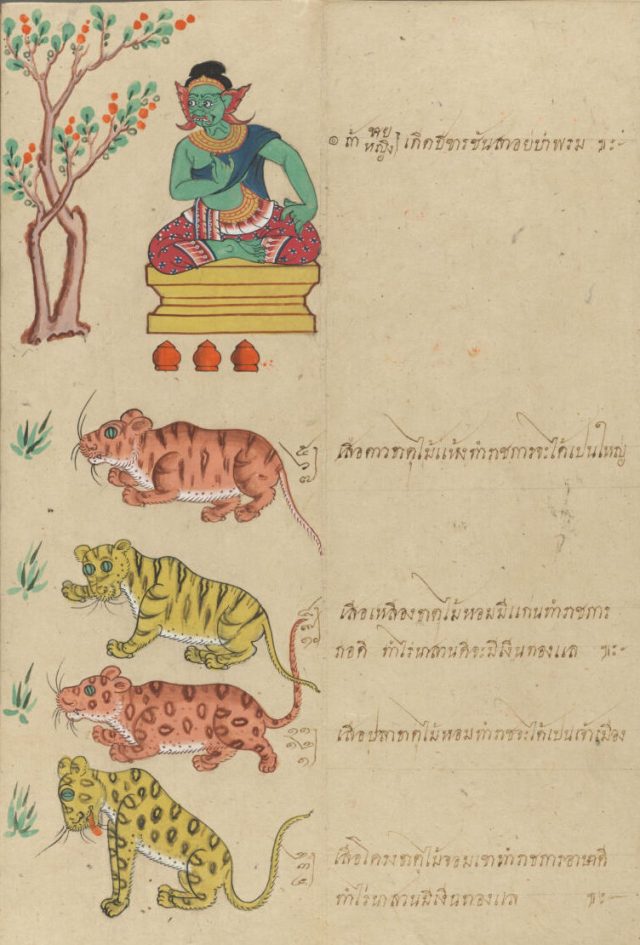 ๏ ถ้า ชาย หญิง เกิดปีขารชันสาอยป่าพรม ฯะ
เสือดาวธาตุไม้แห้งทำราชการจะได้เปนใหญ่
เสือเหลืองธาตุไม้หอมมีแกนทำราชการ
ก็ดี ทำไร่นาสวนดีจะมีเงินทองแล ฯะ
เสือปลาธาตุไม้หอมทำราชจะได้เปนเจ้าเมือง
เสือโครงธาตุไม้จอมเขาทำราชการอาษาดี
ทำไร่นาสวนมีเงินทองแล ฯะ